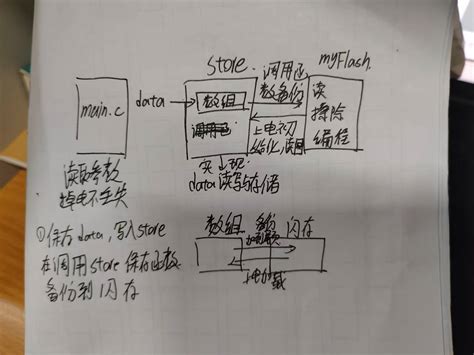 store
myFlash
调用函
数备份
main.c
data
数组
上电初
始化,读回
读
擦除
编程
实现:
data读写与存储
读取参数
掉电不丢失
①保存data,写入store
在调用store保存函数
备份到闪存
数组
备份
闪存
上电加载